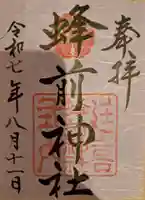 奉拝
蜂前神社
令和七年八月十一日